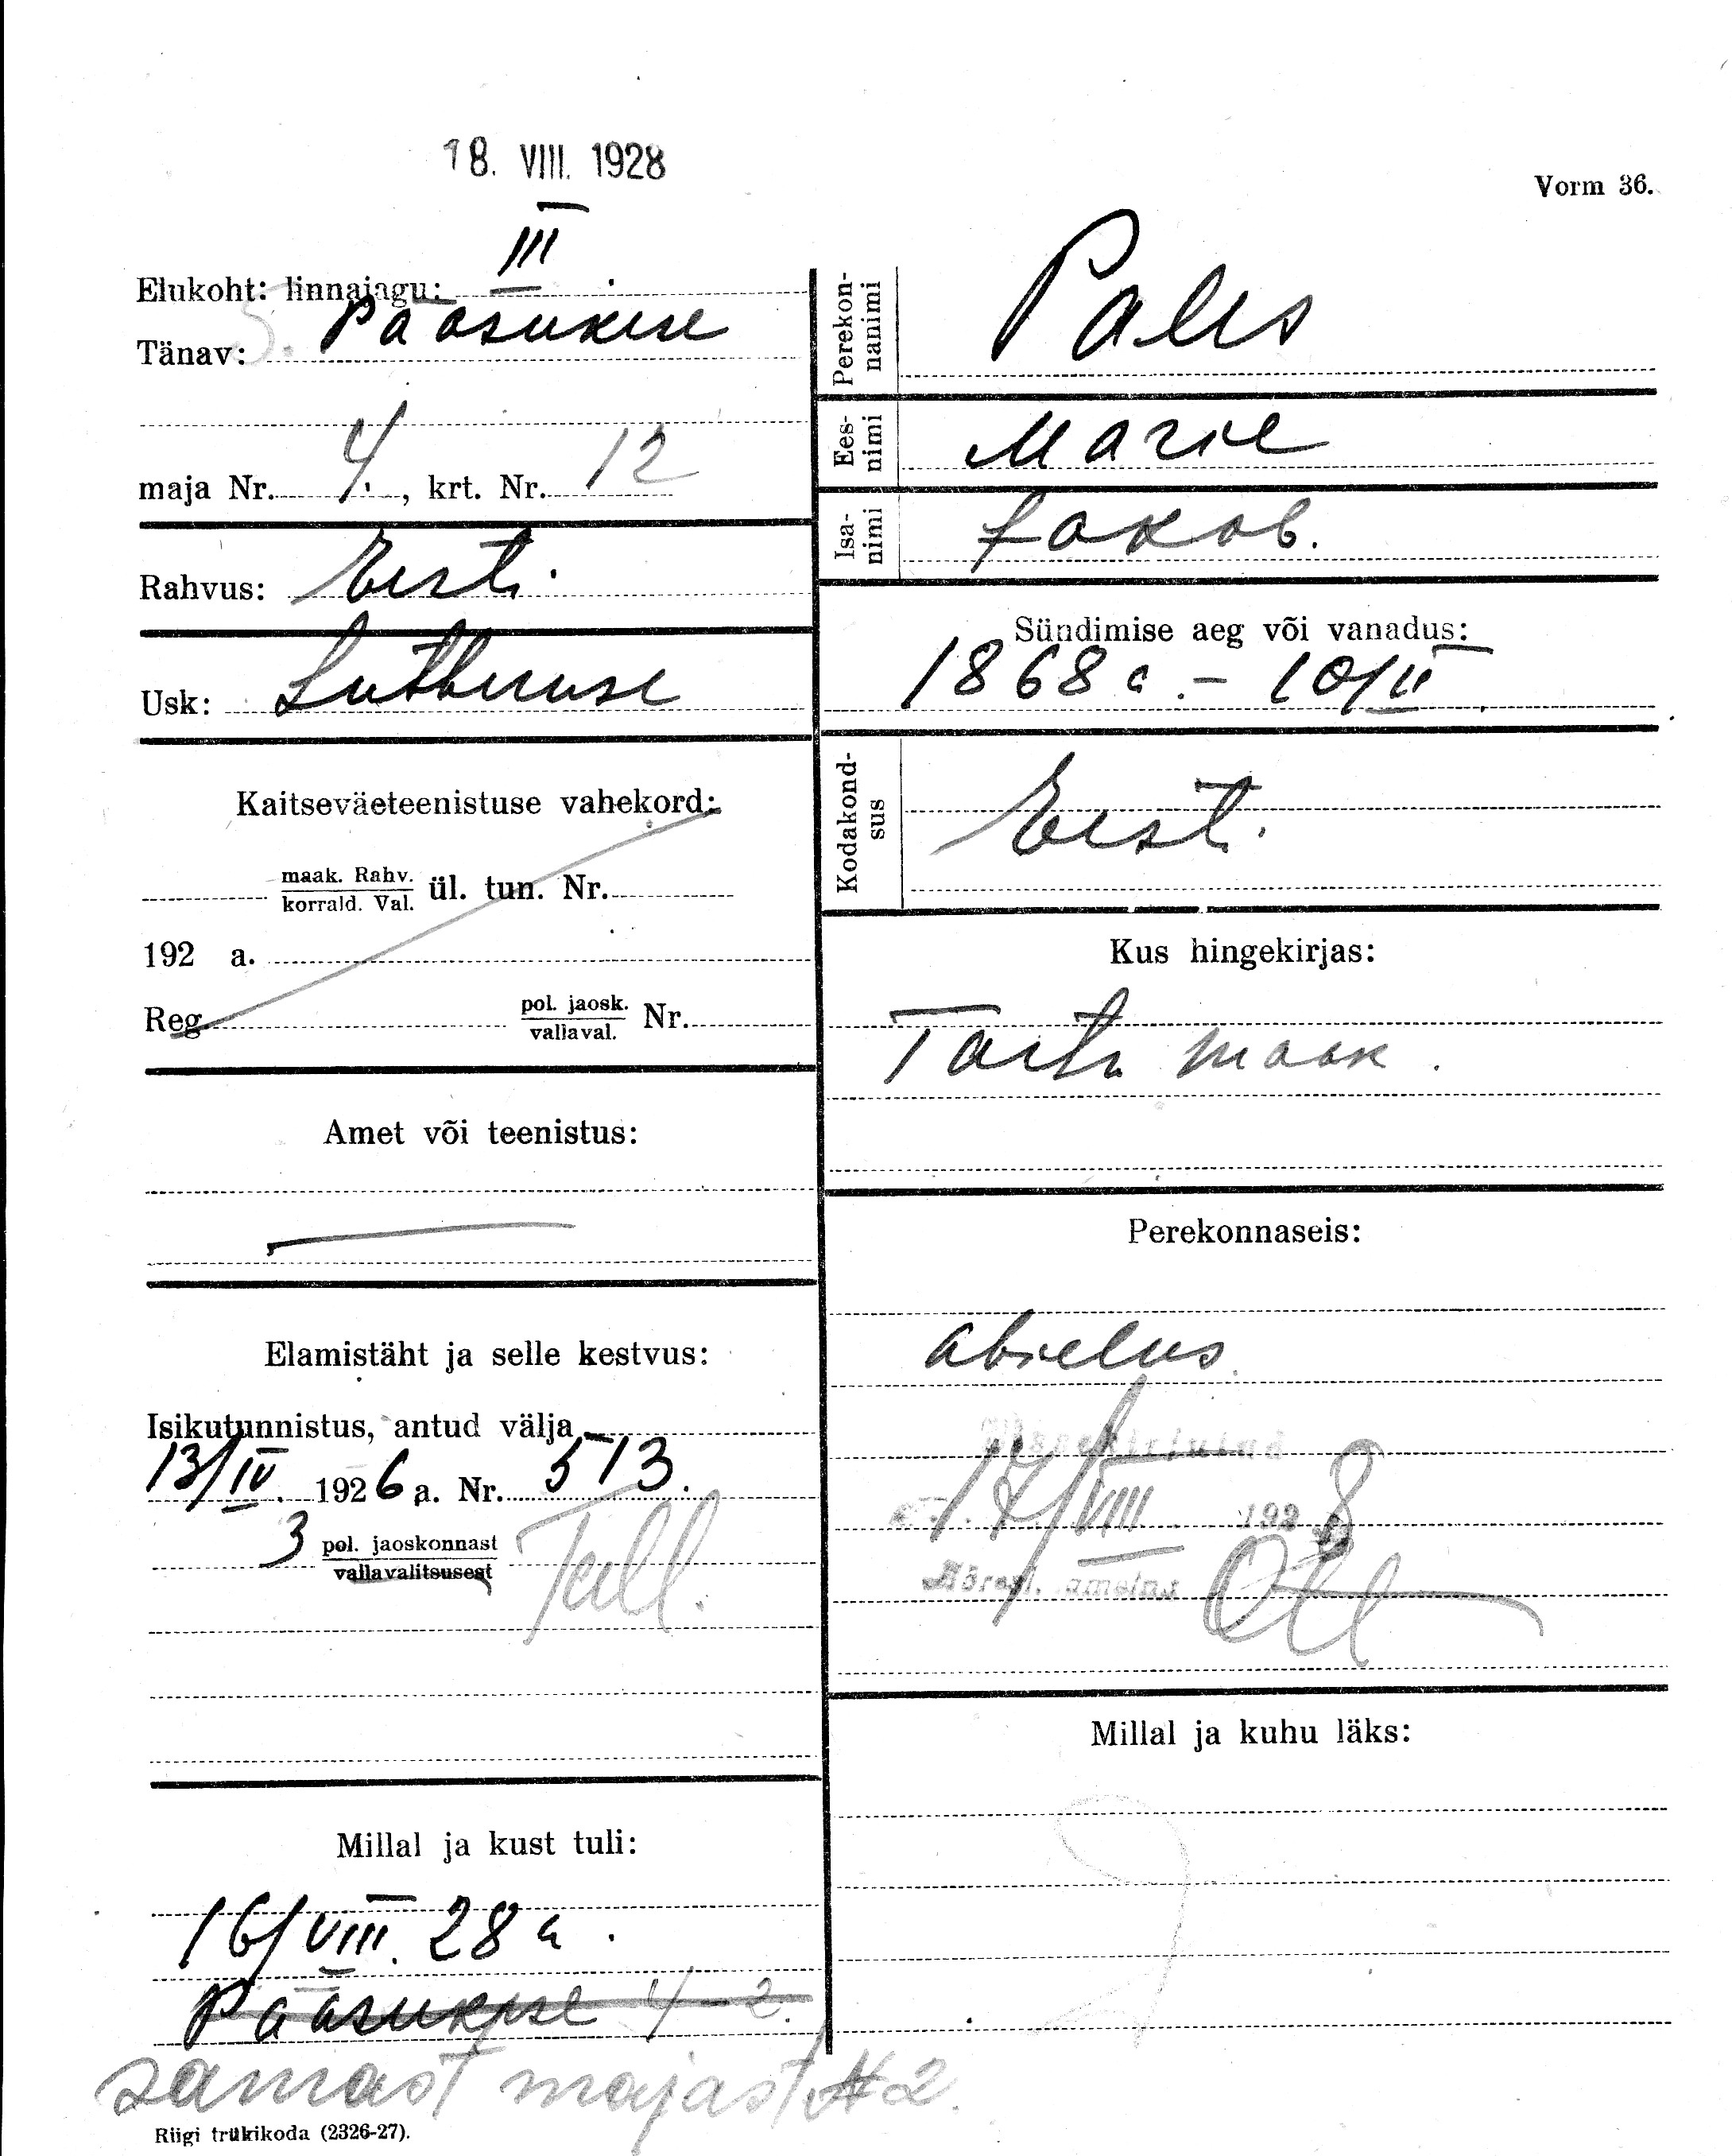 18. VIII. 1928
Vorm 36.
Elukoht: linnajagu: III
Tänav: Pääsukese
maja Nr. 4, krt. Nr. 12
Rahvus: Eesti.
Usk: Lutheruse
Kaitseväeteenistuse vahekord:
maak. Rahv.
korrald. Val. ül. tun. Nr.
192 a.
Reg. pol. jaosk.
vallaval. Nr.
Amet või teenistus:
Elamistäht ja selle kestvus:
Isikutunnistus, antud välja
13/IV. 1926 a. Nr. 513.
3 pol. jaoskonnast
vallavalitsusest Tall.
Millal ja kust tuli:
16/VIII. 28 a.
Pääsukese 4-2.
samast majast № 2.
Riigi trükikoda (2326-27).
Perekonnanimi
Eesnimi Marie
Isanimi Jakob.
Sündimise aeg või vanadus:
1868 a. - 10/II
Kodakondsus Eesti.
Kus hingekirjas:
Tartu maak.
Perekonnaseis:
abielus
Sissekirjutud
17/VIII 1928
Millal ja kuhu läks: